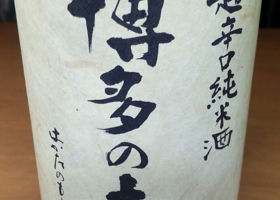 超辛口純米酒
博多の
はかたのも